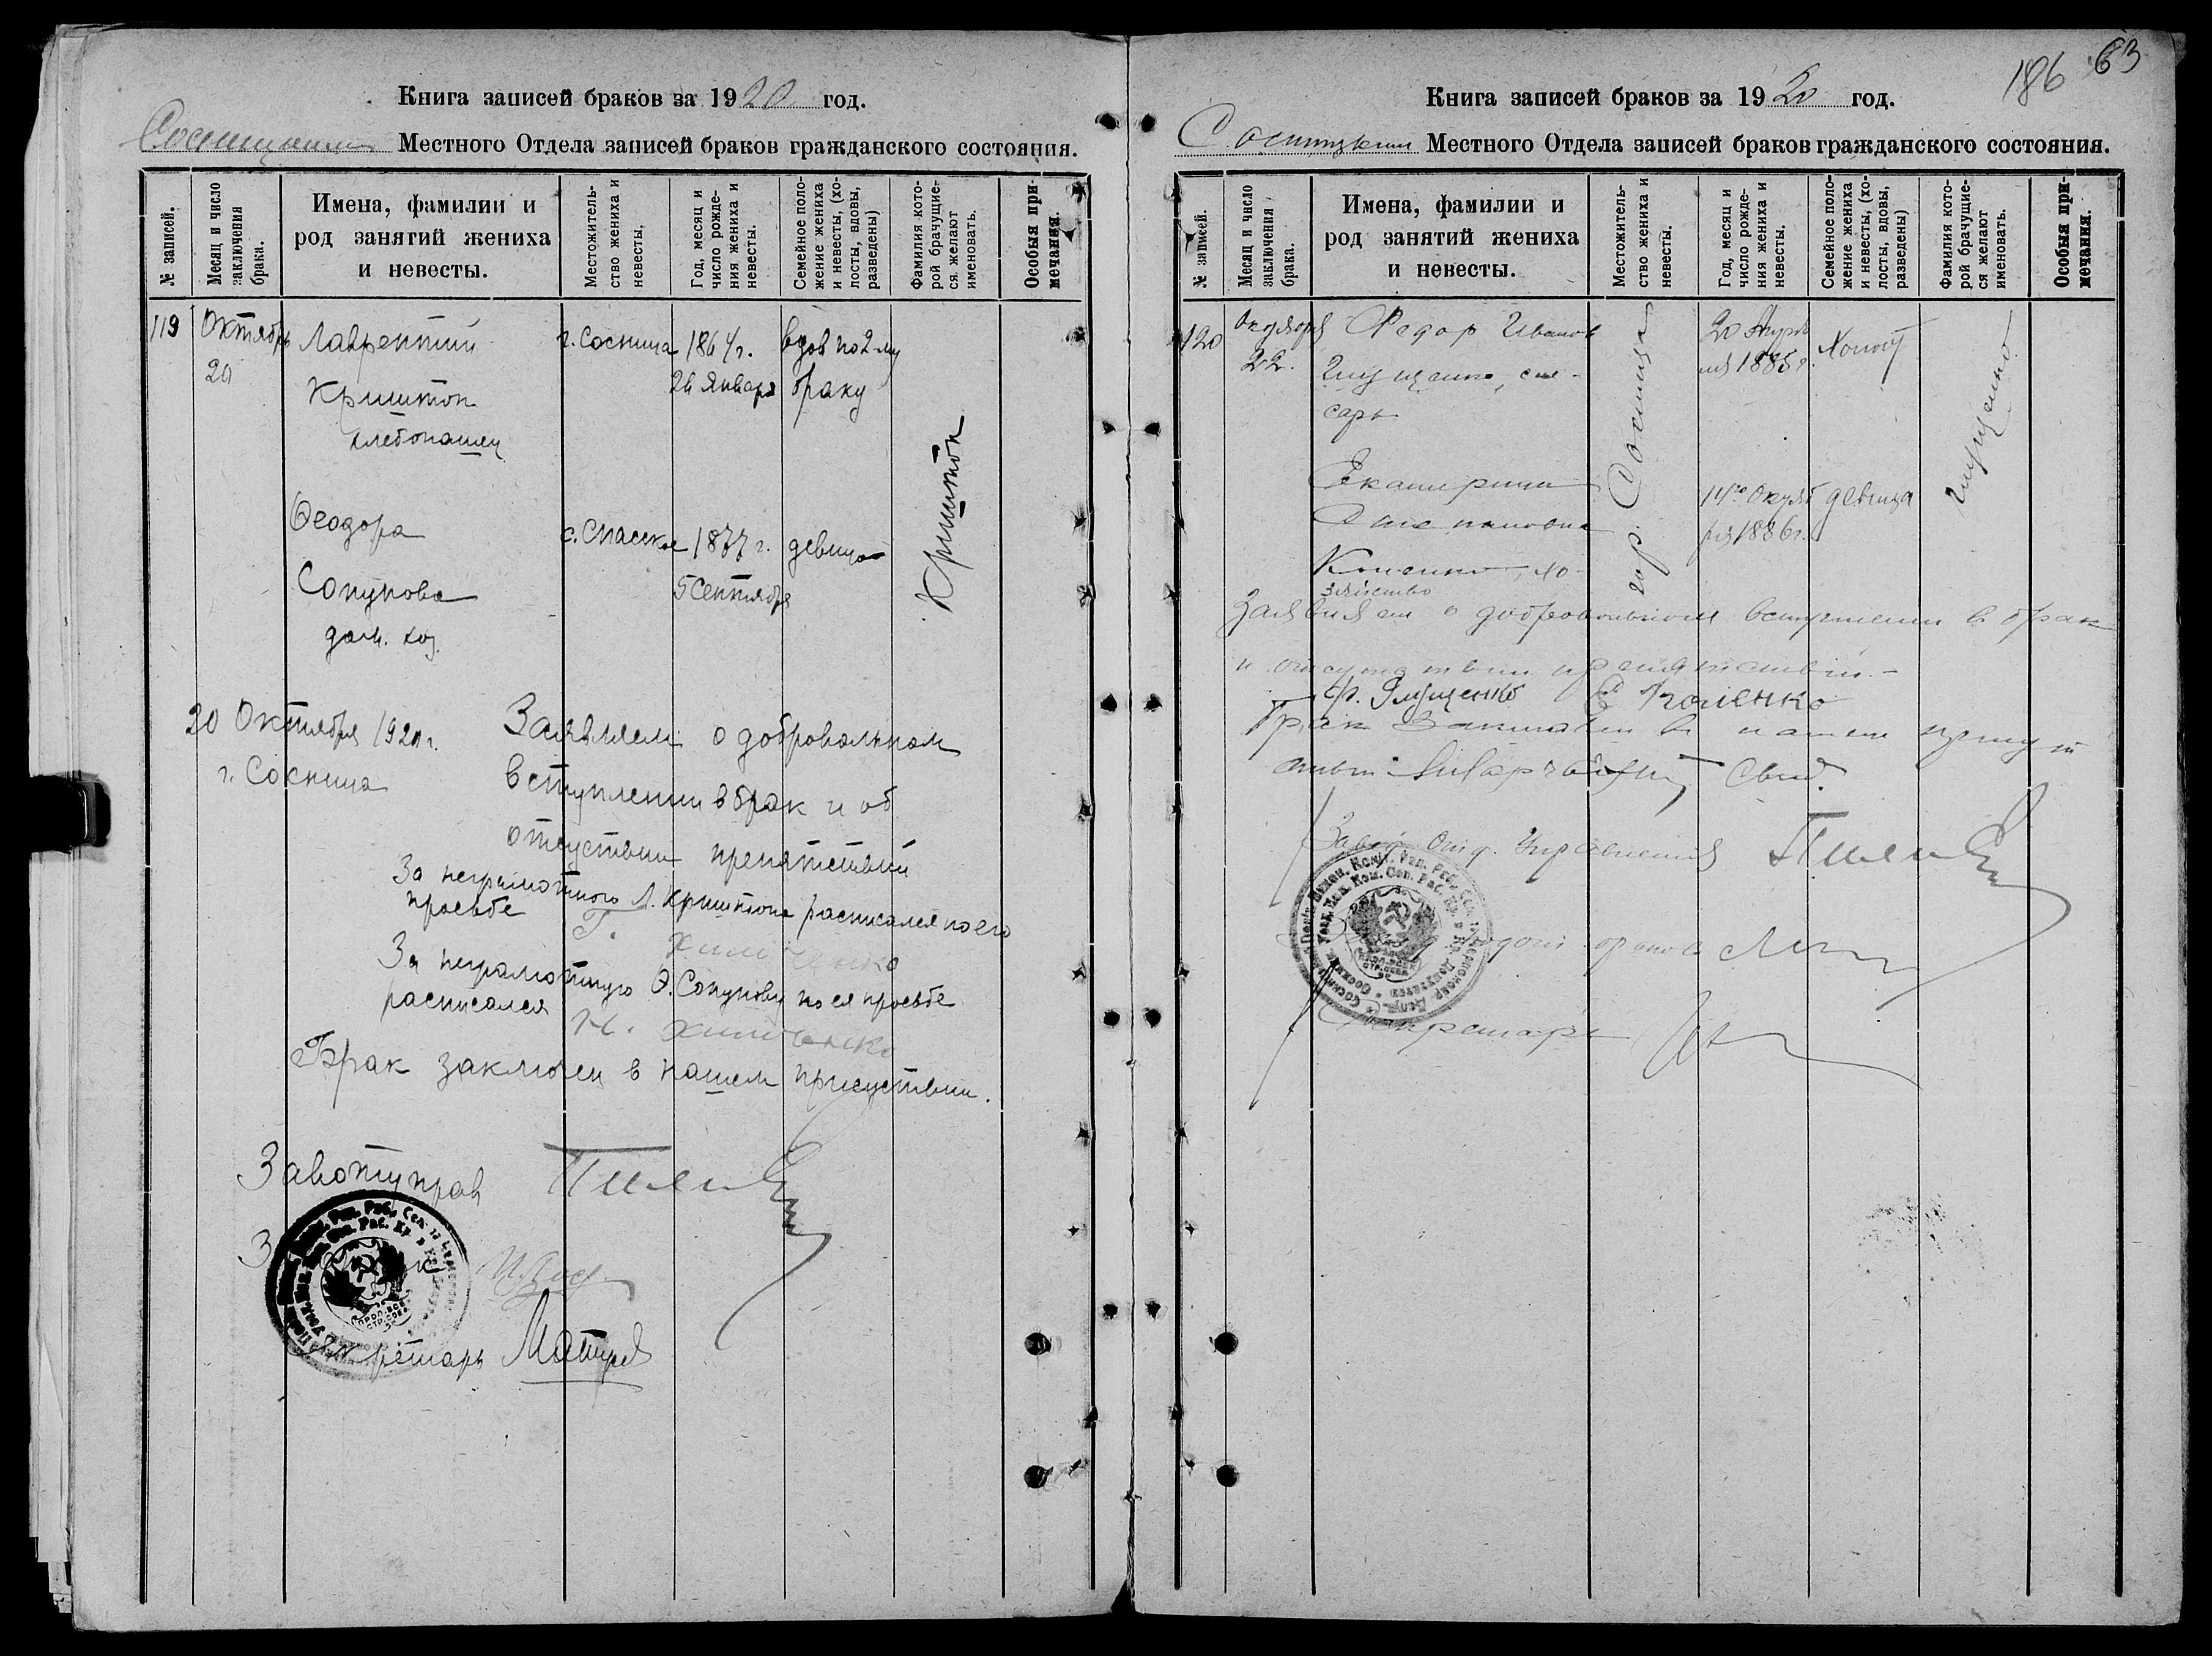 Книга записей браков за 1920 год.
Местного Отдела записей браков гражданского состояния.
№ записей.
Месяц и число заключения брака.
Имена, фамилии и род занятий жениха и невесты.
Местожительство жениха и невесты.
Год, месяц и число рождения жениха и невесты.
Семейное положение жениха и невесты, (холосты, вдовы, разведены)
Фамилия которой брачущиеся желают именовать.
Особыя примечания.
119
Октябрь
20
Лаврентий
Криштоп
хлебопашец
г. Сосница
1864 г.
26 Января
вдов по 2-му
браку
Криштоп
Феодора
Сопунова
дом. хоз.
с. Спасское
1877 г.
5 Сентября
девица
20 Октября 1920 г.
г. Сосница
Заявляем о добровольном
вступлении в брак и об
отсуствии препятствий
За неграмотного Л. Криштопа расписался по его
просьбе
Г.
За неграмотную Ф. Сопунову по ея просьбе
расписался
Н.
Брак заключен в нашем присуствии.
Завотуправ
Секретарь
186 63
Книга записей браков за 1920 год.
Местного Отдела записей браков гражданского состояния.
№ записей.
Месяц и число заключения брака.
Имена, фамилии и род занятий жениха и невесты.
Местожительство жениха и невесты.
Год, месяц и число рождения жениха и невесты.
Семейное положение жениха и невесты, (холосты, вдовы, разведены)
Фамилия которой брачущиеся желают именовать.
Особыя примечания.
120
Октября
22.
Федор Иванов
слесарь
гор. Сосница
20 Апреля 1885 г.
Холост
Екатерина
хозяйство
14го Октября 1886 г.
девица
Заявляем о добровольном вступлении в брак
и отсутствии препятствий. -
Брак заключен в нашем присутствии
Завед. Отд. Управления
Секретарь